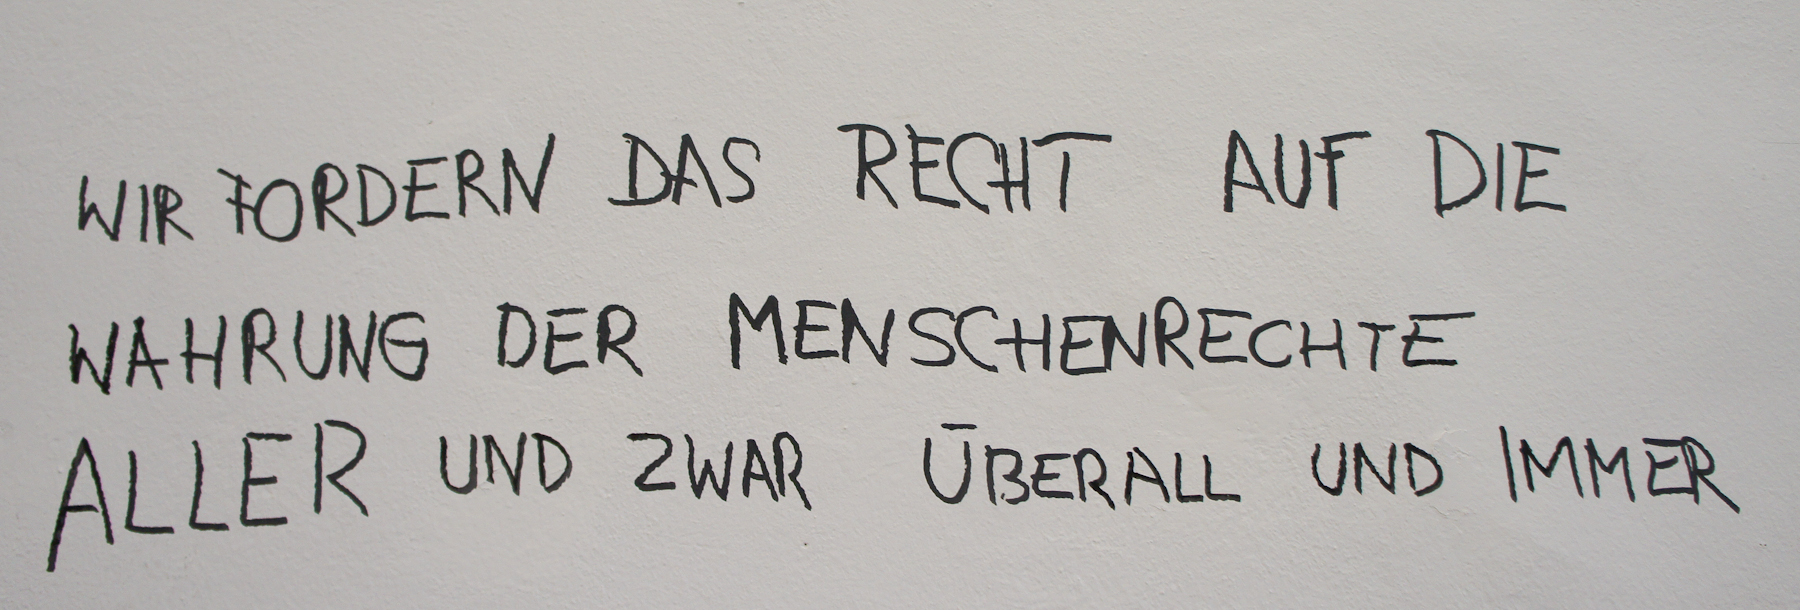 WIR FORDERN DAS RECHT AUF DIE
WAHRUNG DER MENSCHENRECHTE
ALLER UND ZWAR ÜBERALL UND IMMER